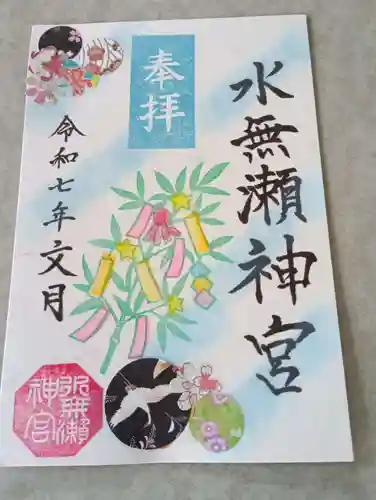 奉拝
水無瀬神宮
令和七年文月
水無瀬
神宮